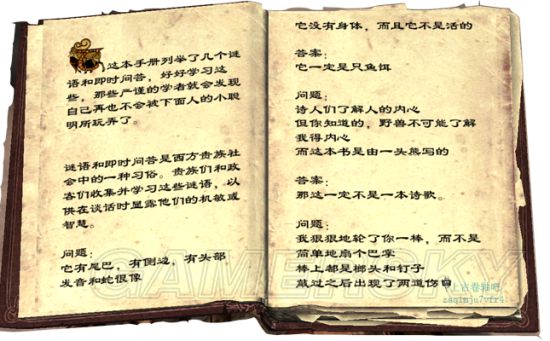 这本手册列举了几个谜
语和即时问答，好好学习这
些，那些严谨的学者就会发现
自己再也不会被下面人的小聪
明所玩弄了。
谜语和即时问答是西方贵族社
会中的一种习俗。贵族们和政
客们收集并学习这些谜语，以
供在谈话时显露他们的机敏或
智慧。
问题：
它有尾巴，有侧边，有头部
发音和蛇很像
它没有身体，而且它不是活的
答案：
它一定是只鱼饵
问题：
诗人们了解人的内心
但你知道的，野兽不可能了解
我得内心
而这本书是由一头熊写的
答案：
那这一定不是一本诗歌。
问题：
我狠狠地轮了你一棒，而不是
简单地扇个巴掌
棒上都是榔头和钉子
敲过之后出现了两道伤口
GAMERSKY
上古卷轴吧